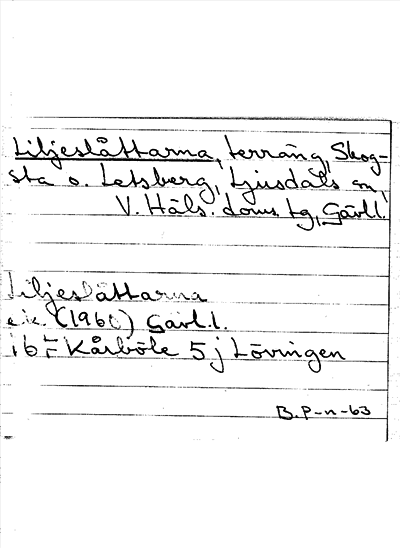 Liljeslåttarna, terräng, Skog-
sta o. Letsberg, Ljusdals sn,
V. Häls. doms. tg, Gävl.l.
Liljeslåttarna
e.k. (1960) Gävl.l.
16 Kårböle 5 j Lövingen
B.P-n-63